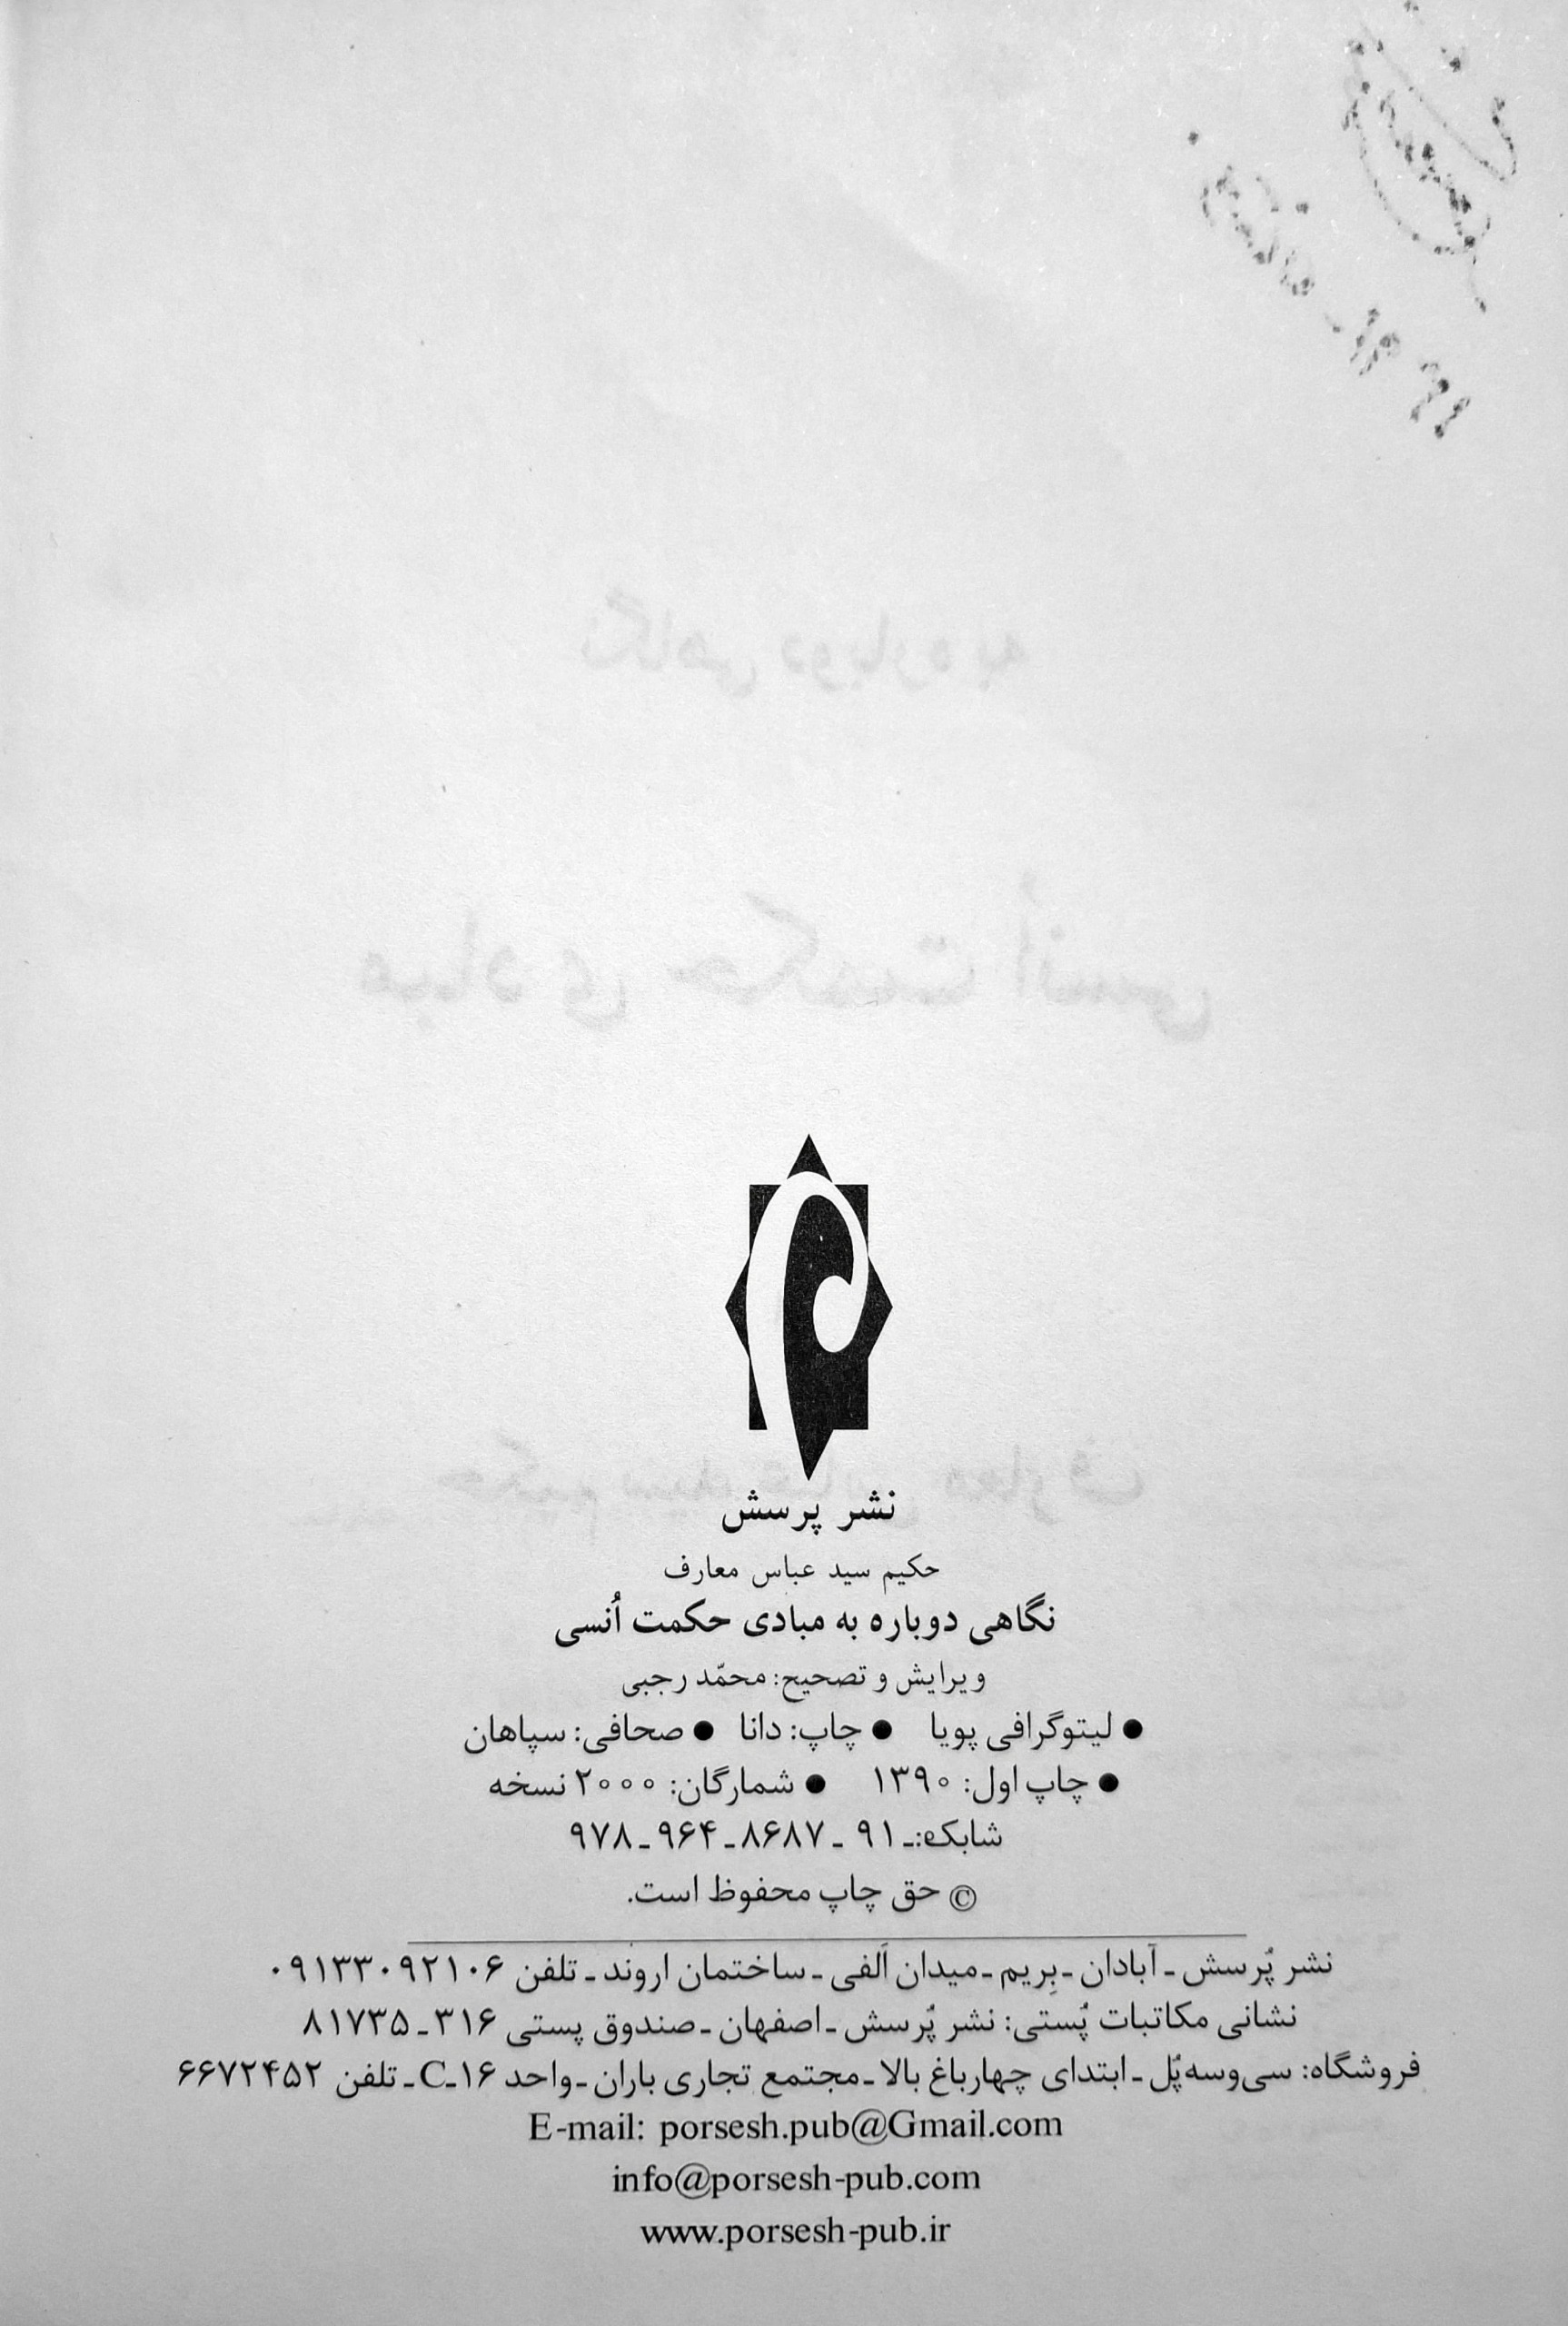 نشر پرسش
حکیم سید عباس معارف
نگاهی دوباره به مبادی حکمت اُنسی
ویرایش و تصحیح: محمّد رجبی
● لیتوگرافی پویا ● چاپ: دانا ● صحافی: سپاهان
● چاپ اول: ۱۳۹۰ ● شمارگان: ۲۰۰۰ نسخه
شابک:ـ ۹۱ ـ ۸۶۸۷ ـ ۹۶۴ ـ ۹۷۸
© حق چاپ محفوظ است.
نشر پُرسش ـ آبادان ـ بِریم ـ میدان اَلفی ـ ساختمان اروند ـ تلفن ۰۹۱۳۳۰۹۲۱۰۶
نشانی مکاتبات پُستی: نشر پُرسش ـ اصفهان ـ صندوق پستی ۳۱۶ ـ ۸۱۷۳۵
فروشگاه: سی‌وسه‌پُل ـ ابتدای چهارباغ بالا ـ مجتمع تجاری باران ـ واحد ۱۶ـC ـ تلفن ۶۶۷۲۴۵۲
E-mail: porsesh.pub@Gmail.com
info@porsesh-pub.com
www.porsesh-pub.ir